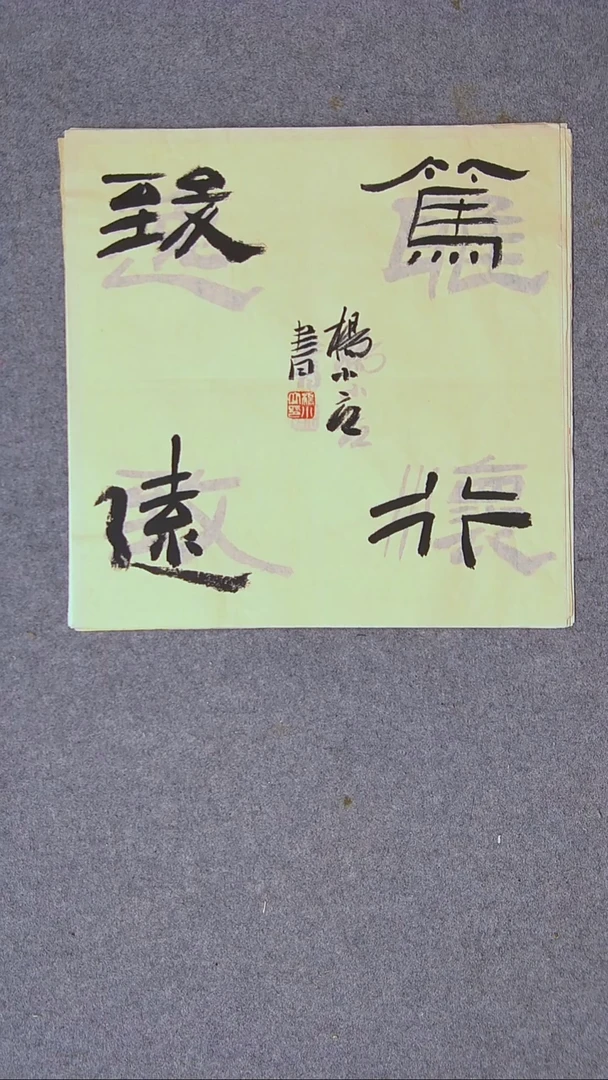 篤行
致遠
楊小
書